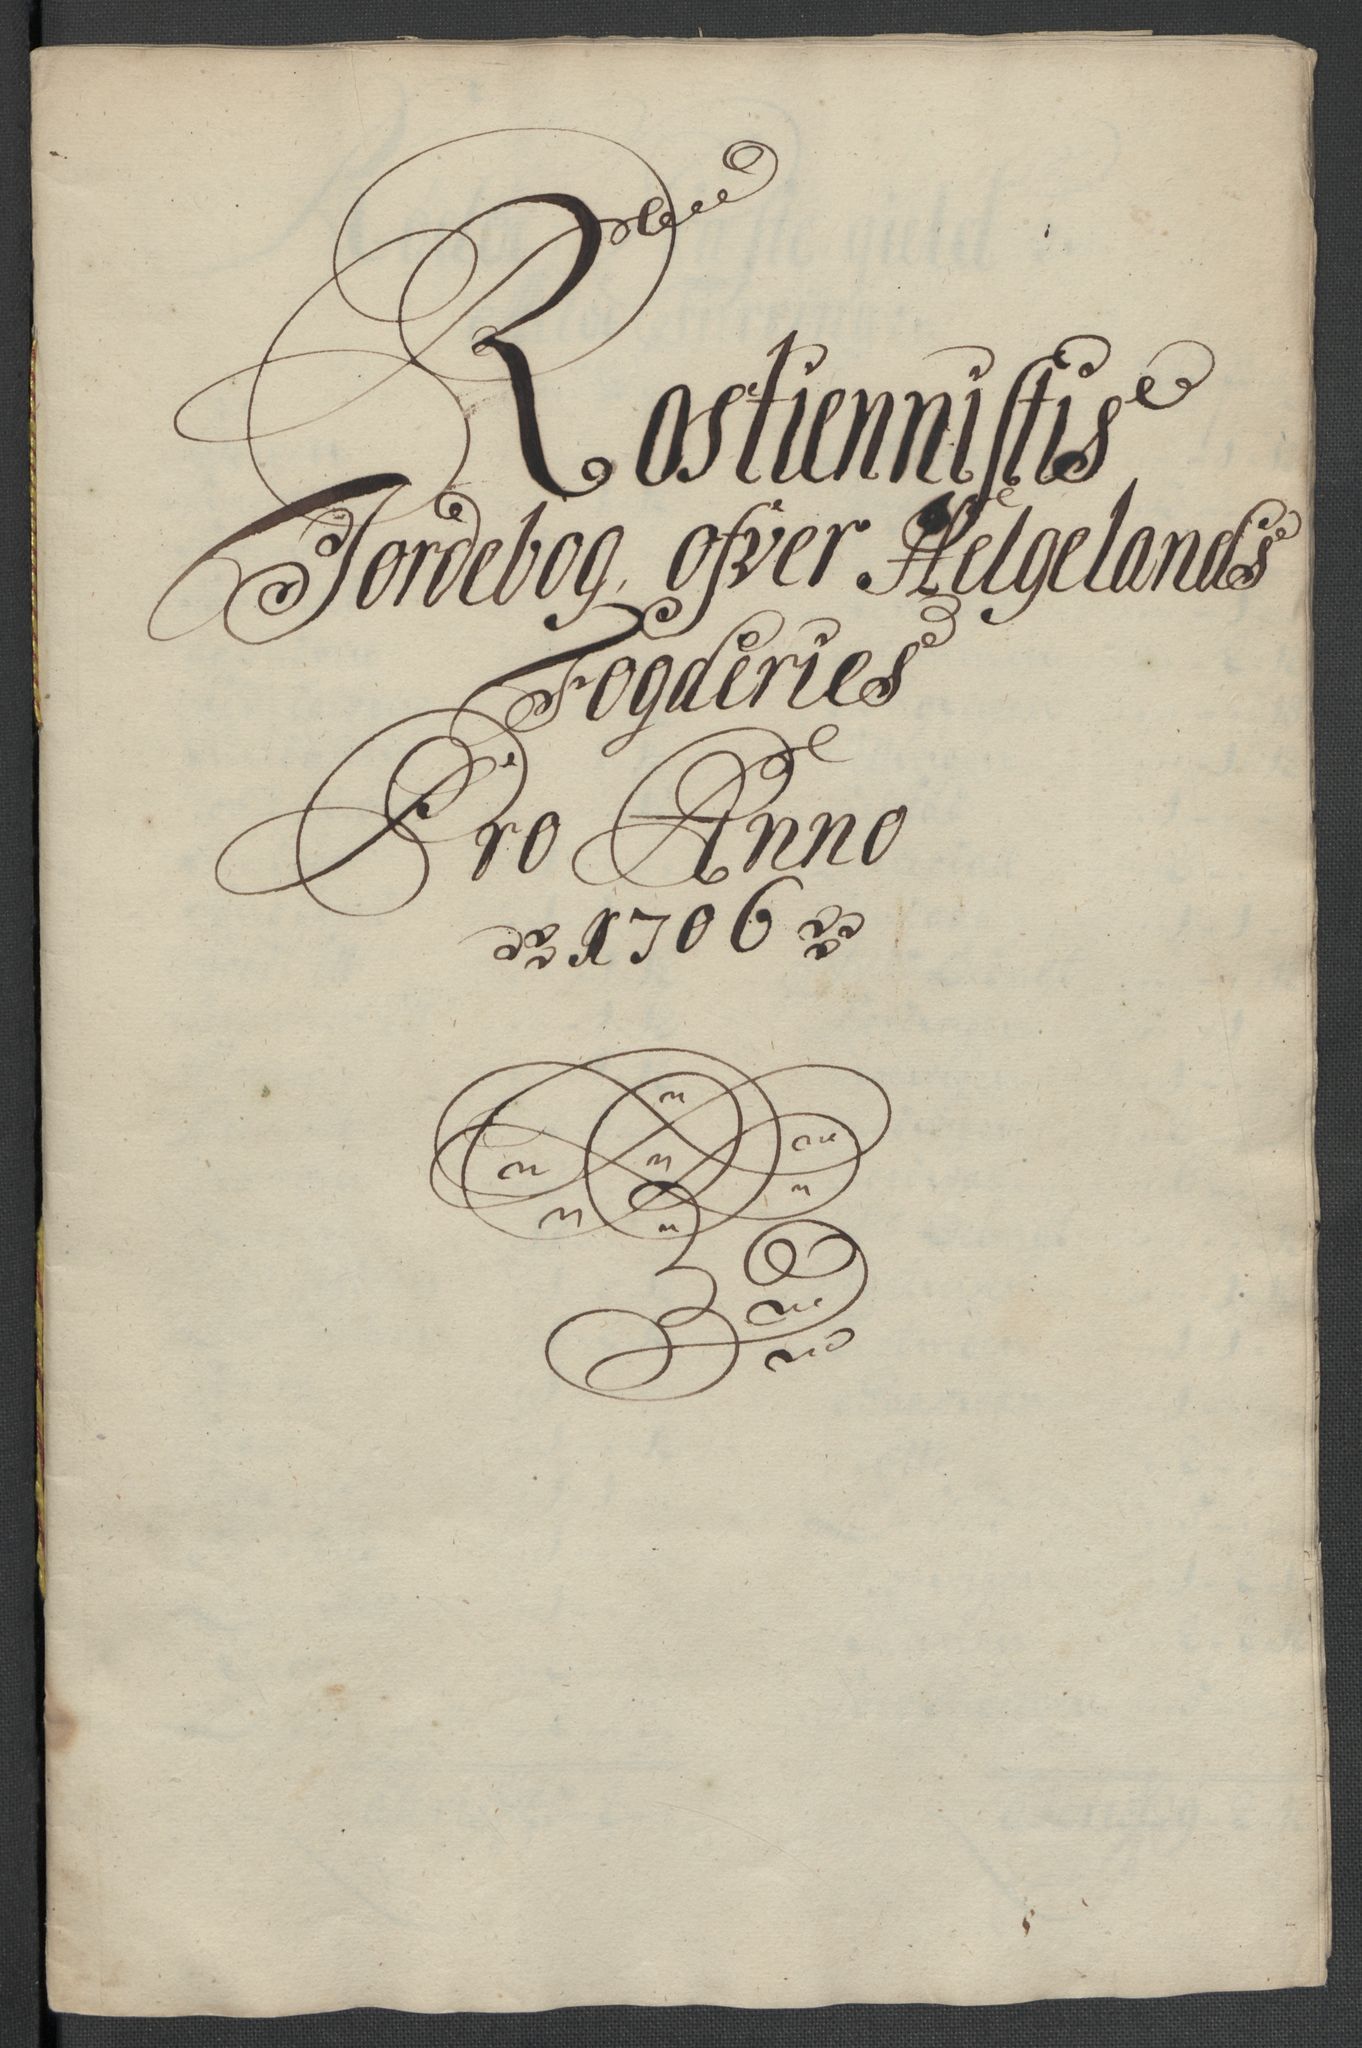 Rostiennistis
Jordebog ofver Helgelands
Fogderies
Pro Anno
1706